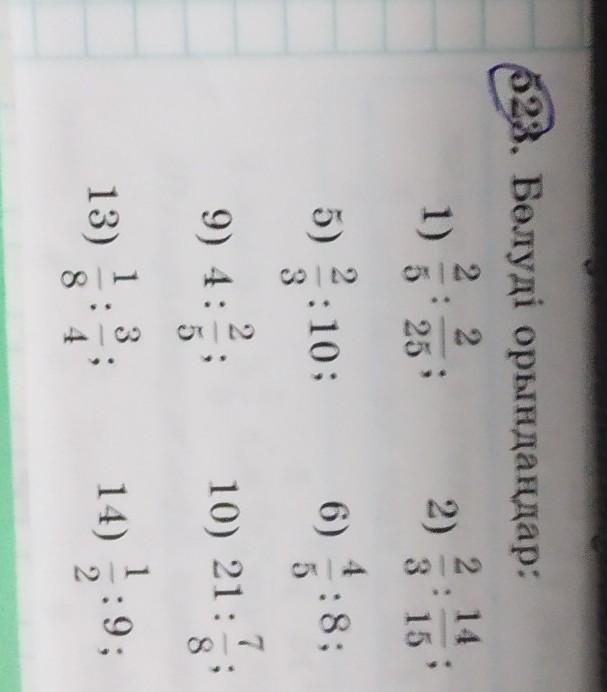 523. Бөлуді орындаңдар:
1) 2/5 : 2/25; 2) 2/3 : 14/15;
5) 2/3 : 10; 6) 4/5 : 8;
9) 4 : 2/5; 10) 21 : 7/8;
13) 1/8 : 3/4; 14) 1/2 : 9;